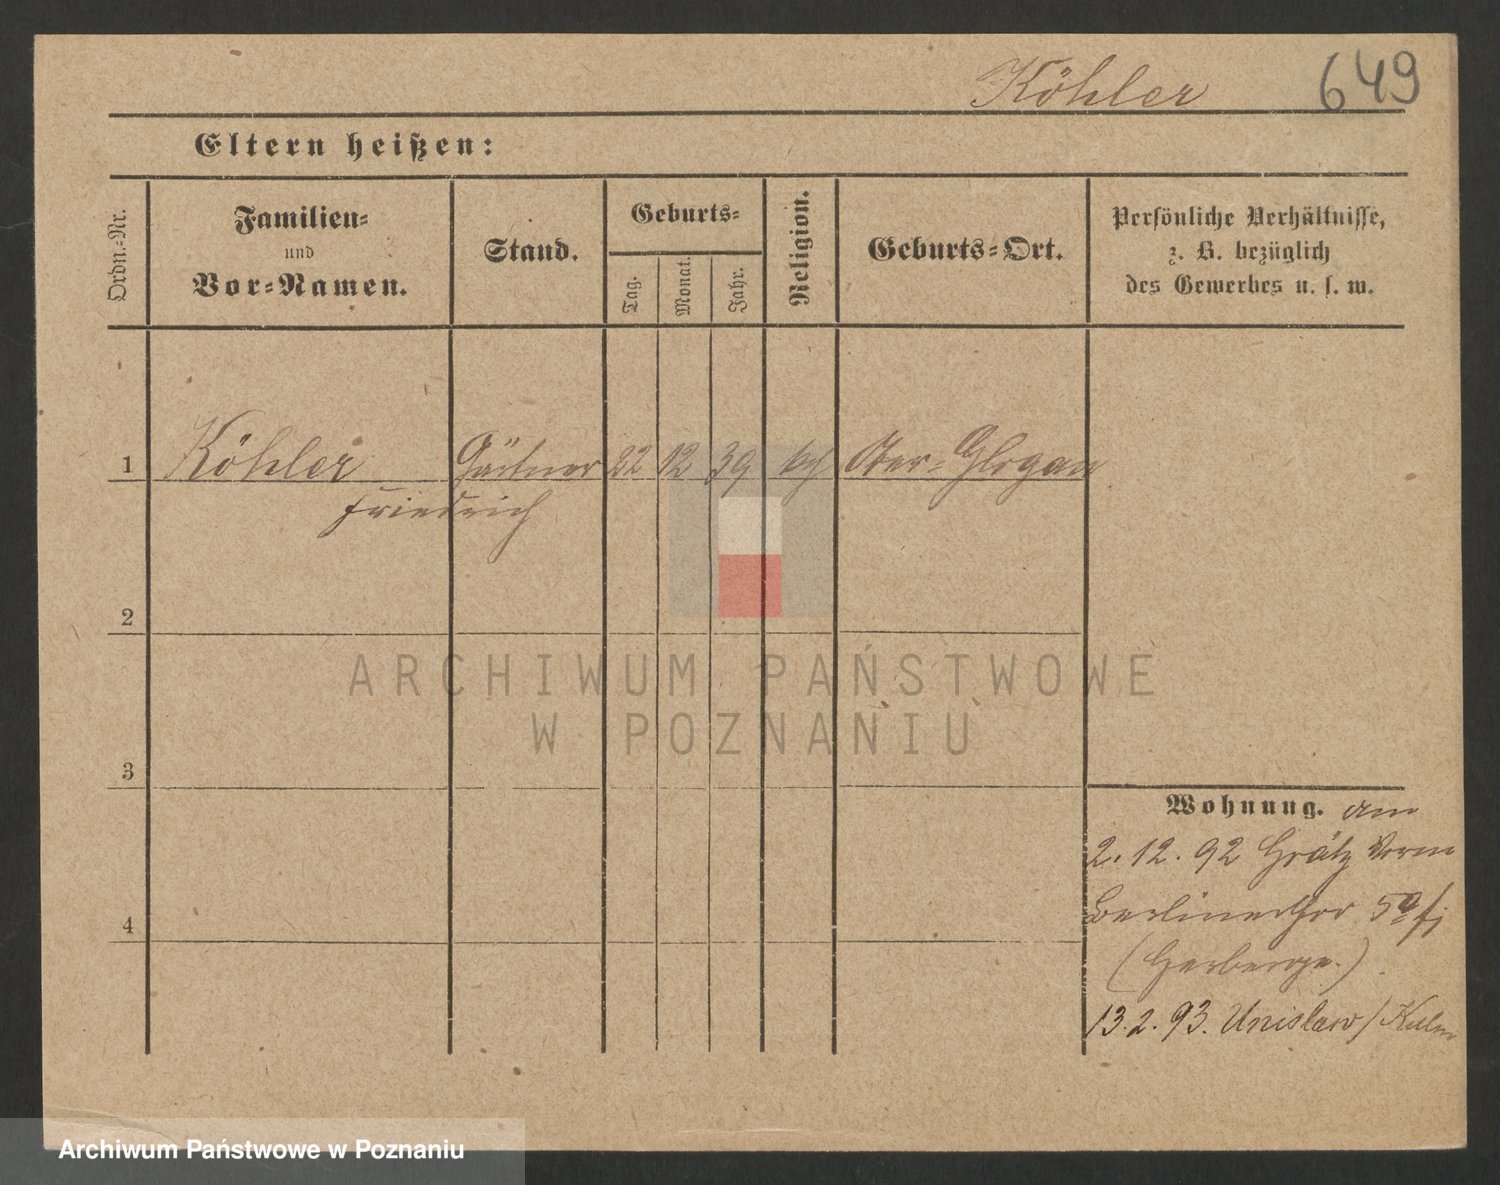 Köhler 649
Eltern heißen:
Ordn.-Nr.
Familien-
und
Vor-Namen.
Stand.
Geburts-
Tag.
Monat.
Jahr.
Religion.
Geburts-Ort.
Persönliche Verhältnisse,
z. B. bezüglich
des Gewerbes u. s. w.
1 Köhler Gärtner 22 12 39 Ober-Glogau
Friedrich
2
3
4
Wohnung. am
2.12.92 Grätz
Berlinerthor
(Herberge.)
13.2.93. Unislaw/Kulm
ARCHIWUM PAŃSTWOWE
W POZNANIU
Archiwum Państwowe w Poznaniu